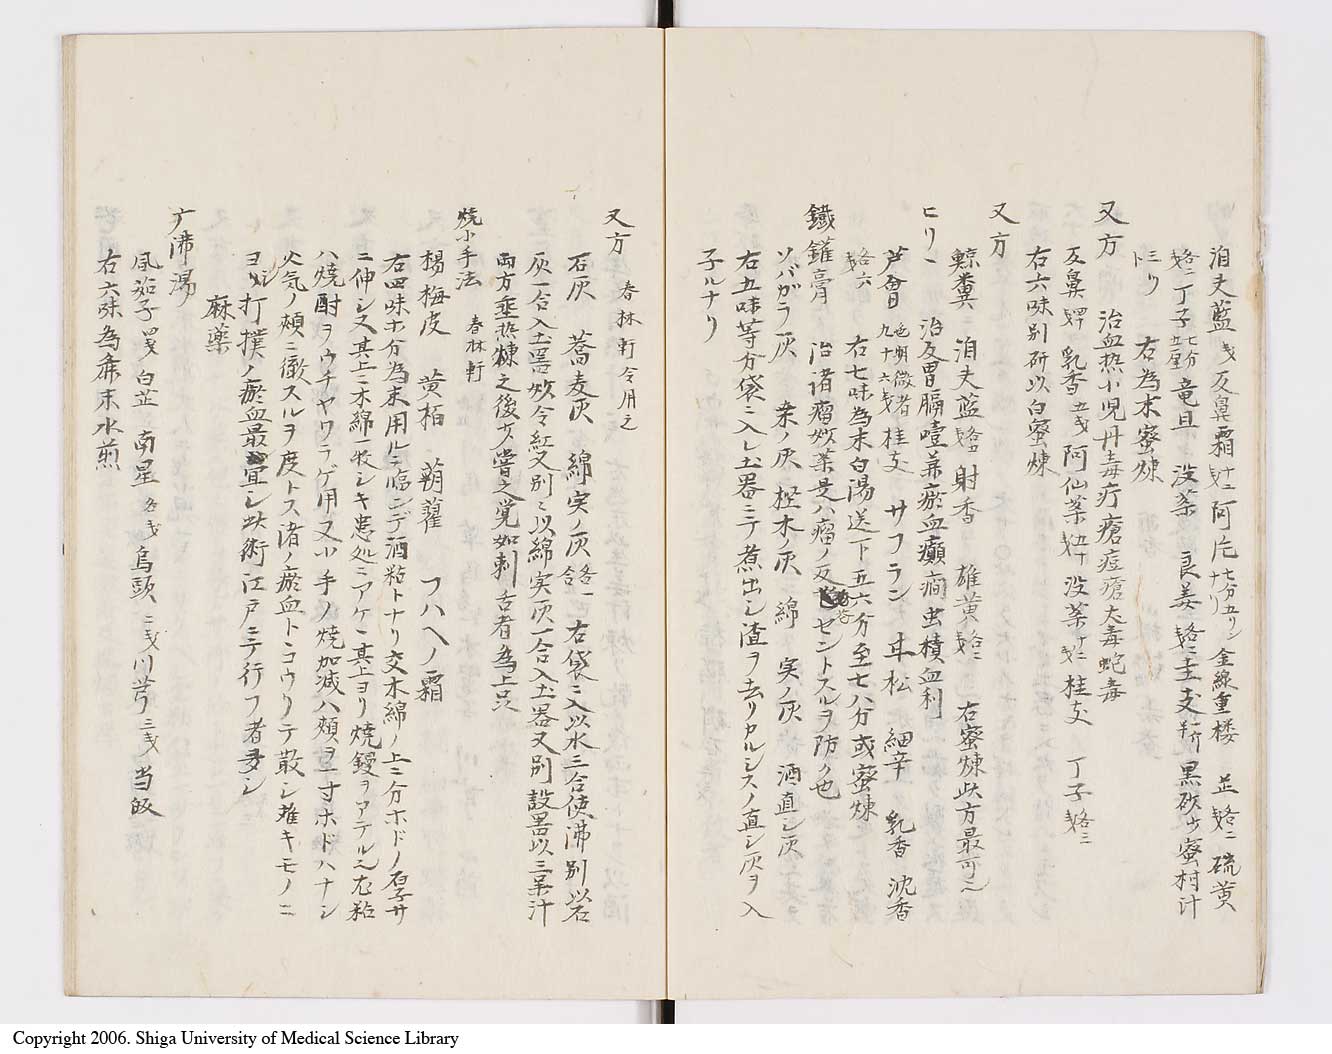 泊夫藍 戔 反鼻霜 阿片 七分五リン 金線重楼 芷 各二戔 硫黄
丁子 七分五厘 竜旦 没薬 良姜 各二戔 圭支 黒砂 蜜柑汁
右為末蜜煉
又方 治血熱小児丹毒疔瘡痘瘡大毒蛇毒
反鼻 乳香 五戔 阿仙薬 没薬 桂支 丁子 各三戔
右六味別研以白蜜煉
又方
鯨糞 二 泊夫藍 各戔 射香 一 雄黄 各戔二 右蜜煉此方最可シ
ヒリー 治反胃膈噎并瘀血癲癇虫積血利
芦會 色期微者九十六戔 桂支 サフラン 甘松 細辛 乳香 沈香
各六戔 右七味為末白湯送下五六分至七八分或蜜煉
鐵鏟膏 治諸瘤妙薬是ハ瘤ノ反セントスルヲ防ク也
ソバガラ灰 桒ノ灰 樫木ノ灰 綿実ノ灰 酒直シ灰
右五味等分袋ニ入レ土器ニテ煮出シ渣ヲ去リカルシスノ直シ灰ヲ入
子ルナリ
又方 春林軒今用之
石灰 蕎麦灰 綿実ノ灰 各一合 右袋ニ入以水三合使沸別以石
灰一合入土器炒令紅又別ニ以綿実灰一合入土器又別設器以三呆汁
両方垂煎煉之後少嘗之覚如刺舌者為上品
焼小手法 春林軒
楊梅皮 黄栢 蒴藋 フハヘノ霜
右四味ホ分為末用ルニ臨ンデ酒粘トナリ交木綿ノ上ニ分ホドノ厚サ
ニ伸シ又其上ニ木綿一枚シキ患処ニアケ其上ヨリ焼鏝ヲアテル也右粘
ハ焼酎ヲウチヤワラゲ用又小手ノ焼加減ハ頬ヲ一寸ホドハナシ
火気ノ頬ニ徹スルヲ度トス諸ノ瘀血トコウリテ散シ難キモノニ
ヨシ打撲ノ瘀血最宜シ此術江戸ニテ行フ者多シ
麻薬
广沸湯
風茄子 四戔 白芷 南星 各戔 烏頭 二戔 川芎 三戔 当皈
右六味為麁末水煎